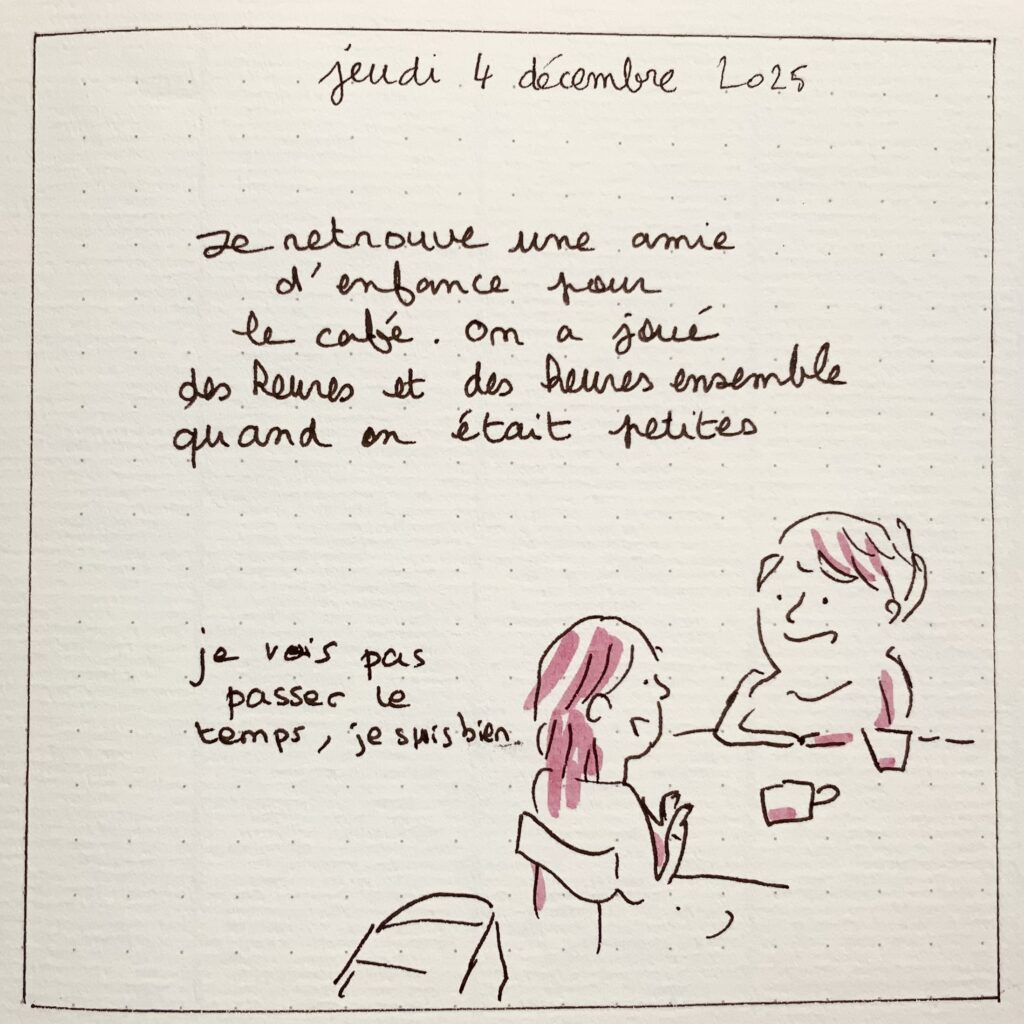 jeudi 4 décembre 2025
Je retrouve une amie
d'enfance pour
le café. On a joué
des heures et des heures ensemble
quand on était petites
je vois pas
passer le
temps, je suis bien